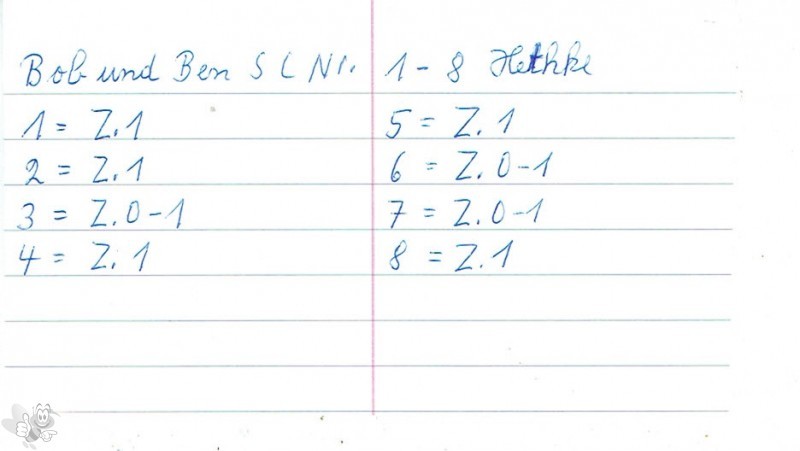 Bob und Ben S L Nr. 1 - 8 Hethke
1 = Z. 1
2 = Z. 1
3 = Z. 0 - 1
4 = Z. 1
5 = Z. 1
6 = Z. 0 - 1
7 = Z. 0 - 1
8 = Z. 1